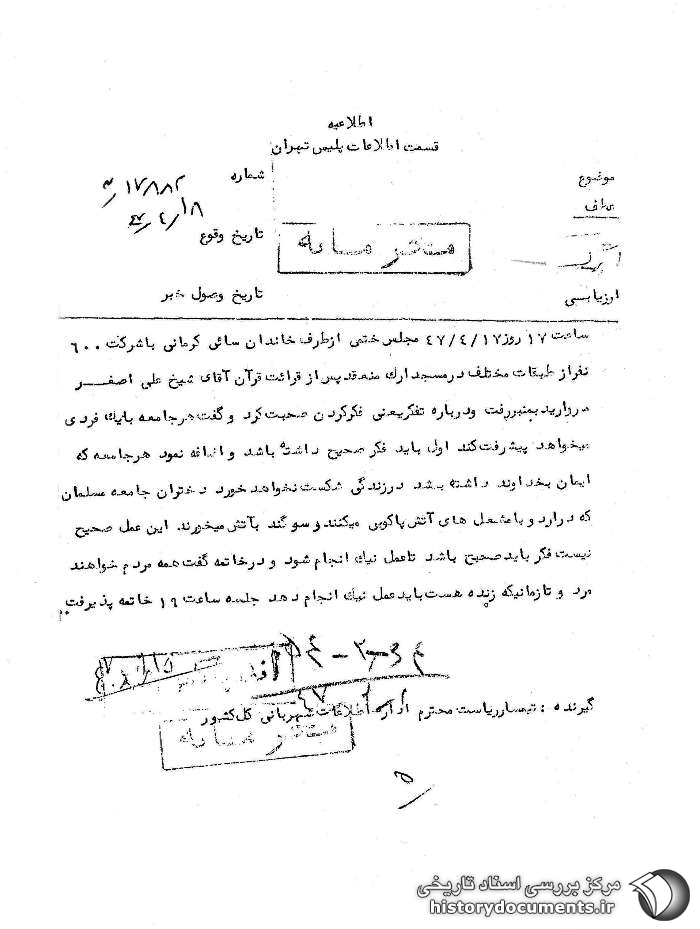 اطلاعیه
قسمت اطلاعات پلیس تهران
موضوع
شماره ۱۷۸۸۲
۴۷/۴/۱۸
تاریخ وقوع
ارزیابی
تاریخ وصول خبر
ساعت ۱۷ روز ۴۷/۴/۱۷ مجلس ختمی ازطرف خاندان سائی کرمانی باشرکت ۶۰۰
نفراز طبقات مختلف درمسجد ارك منعقد پس از قرائت قرآن آقای شیخ علی اصغر
مروارید بمنبررفت ودرباره تفکریعنی فکرکردن صحبت کرد و گفت هرجامعه یايك فردی
میخواهد پیشرفت کند اول باید فکر صحیح داشته باشد و اضافه نمود هرجامعه که
ایمان بخداوند داشته باشد درزندگی شکست نخواهد خورد دختران جامعه مسلمان
که دارد و با مشعل های آتش پاکوبی میکنند و سوگند بآتش میخورند این عمل صحیح
نیست فکر باید صحیح باشد تاعمل نيك انجام شود و درخاتمه گفت همه مردم خواهند
مرد و تازمانیکه زنده هست باید عمل نيك انجام دهد جلسه ساعت ۱۹ خاتمه پذیرفت
گیرنده : تیمسارریاست محترم اداره اطلاعات شهربانی کل کشور
مرکز بررسی اسناد تاریخی
historydocuments.ir